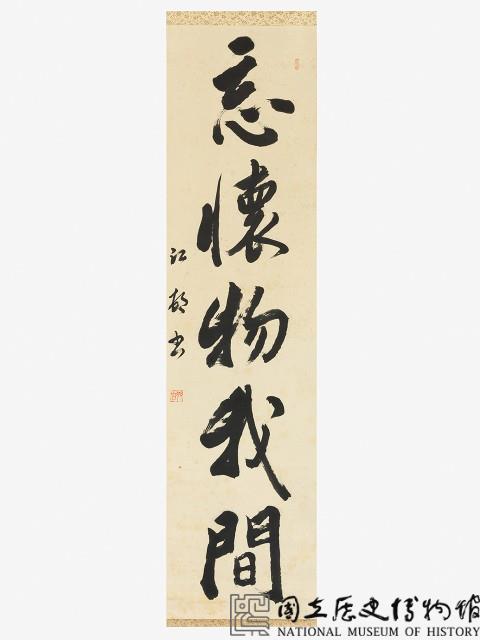 忘懷物我間
江邨書
國立歷史博物館
NATIONAL MUSEUM OF HISTORY